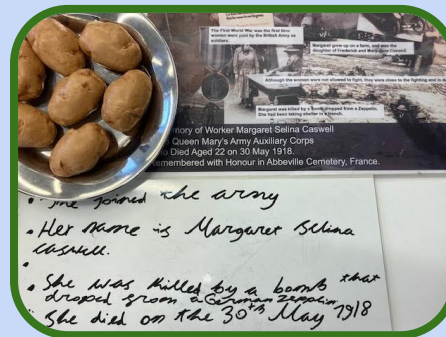 The First World War was the first time
women were paid by the British Army as
soldiers.
Margaret grew up on a farm, and was the
daughter of Frederick and Mary Jane Caswell.
Although the women were not allowed to fight, they were close to the fighting and in
Margaret was killed by a bomb dropped from a Zeppelin.
She had been taking shelter in a trench.
emory of Worker Margaret Selina Caswell
Queen Mary's Army Auxiliary Corps
o Died Aged 22 on 30 May 1918.
emembered with Honour in Abbeville Cemetery, France.
• She joined the army
• Her name is Margaret Selina
caswell.
•
• She was killed by a bomb that
droped from a German zeppelin
• She died on the 30th May 1918